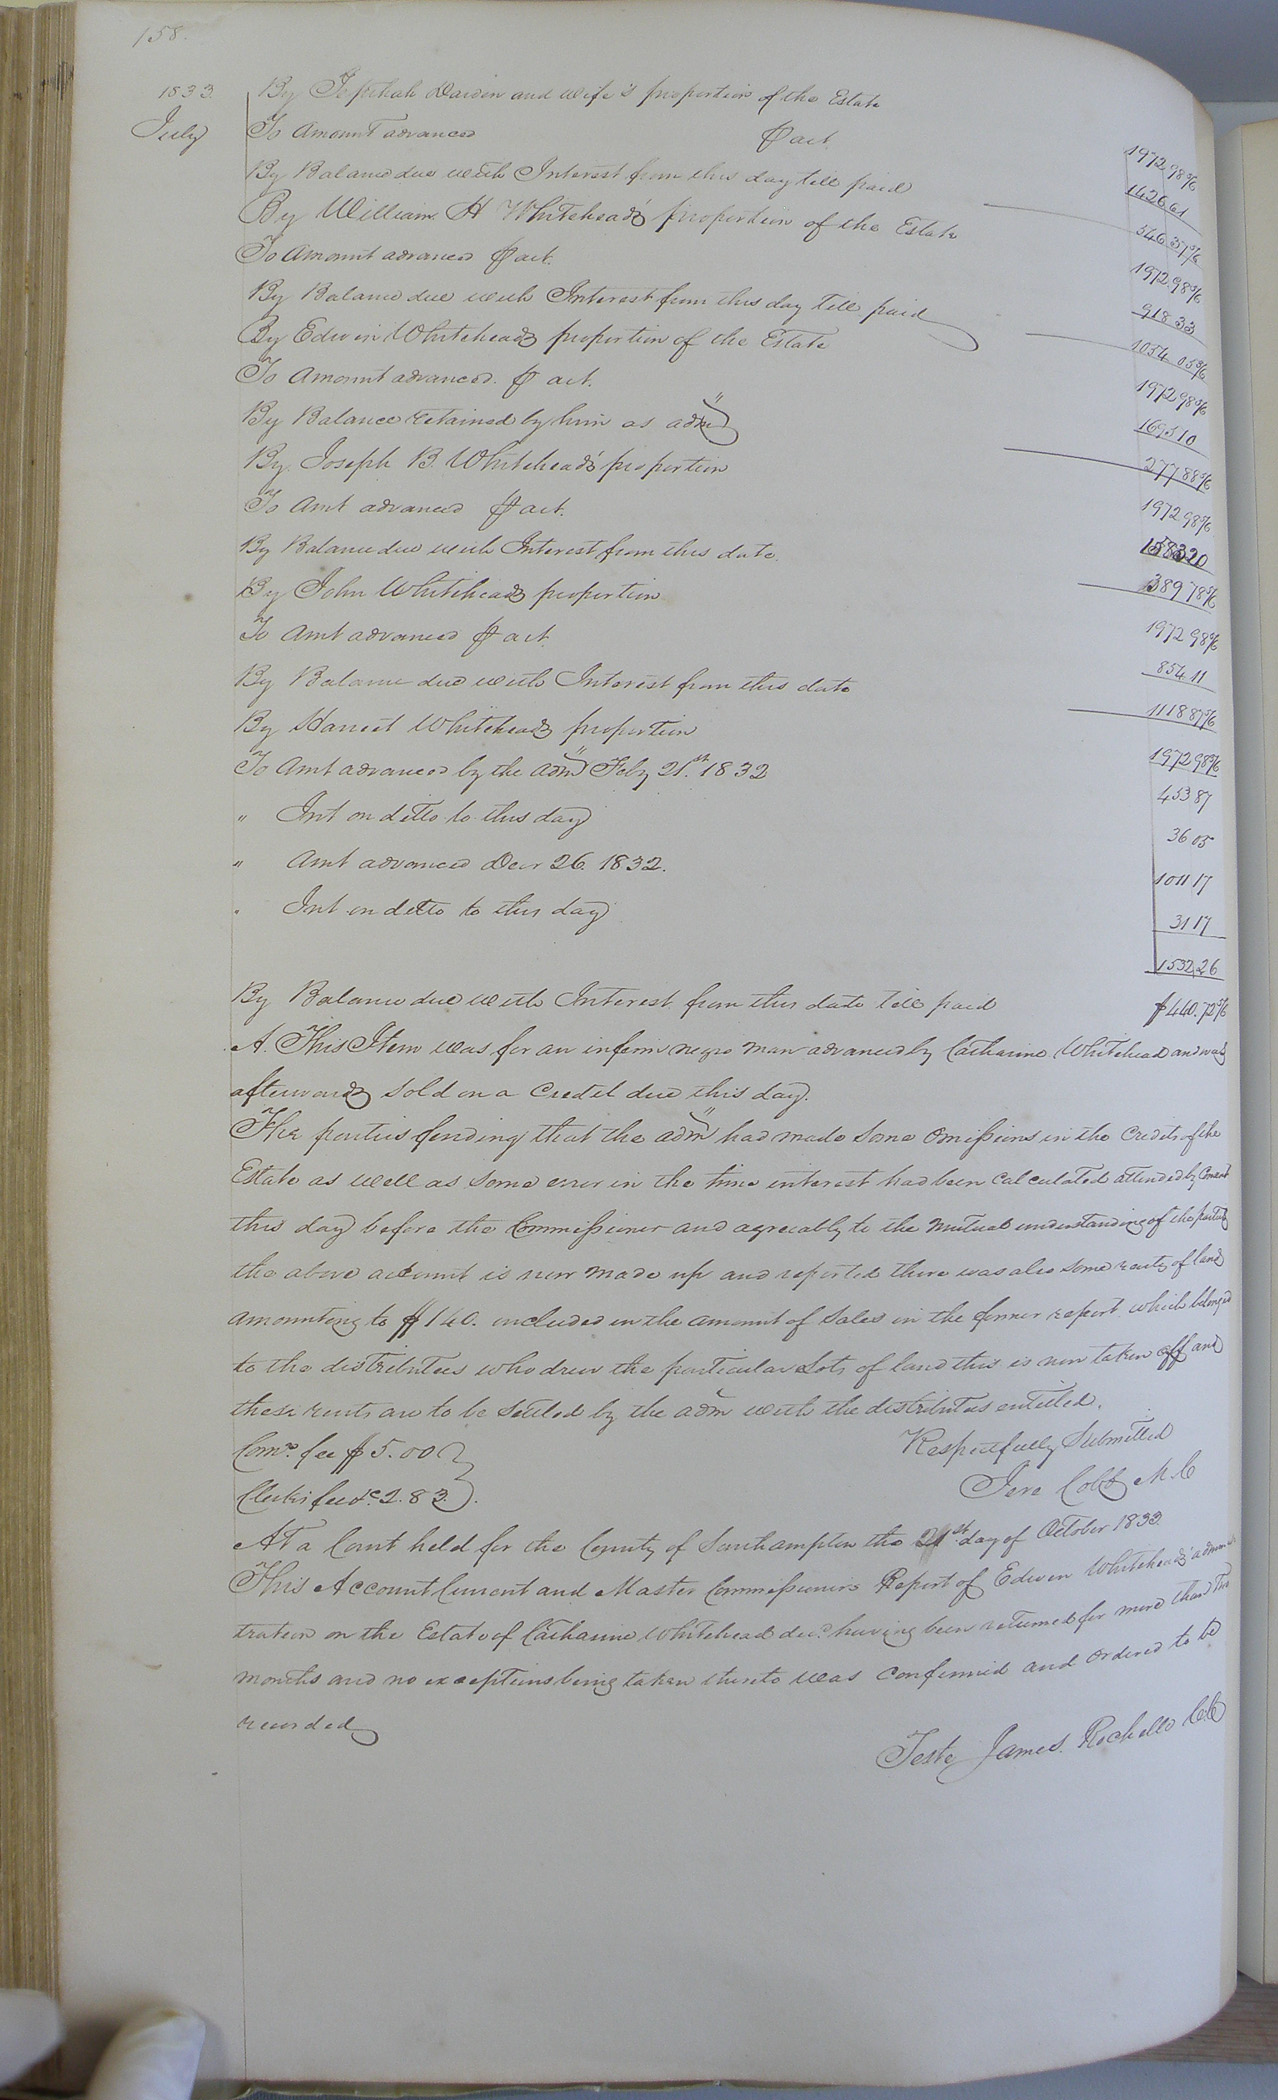 158.
1833 By Jephthah Darden and wife's proportion of the Estate 1972 98 5/6
July To Amount advanced ⅌ act. 1426 61
By Balance due with Interest from this day till paid 546 37 5/6
By William H Whitehead's proportion of the Estate 1972 98 5/6
To Amount advanced ⅌ act. 918 33
By Balance due with Interest from this day till paid 1054 05 5/6
By Edwin Whiteheads proportion of the Estate 1972 98 5/6
To Amount advanced. ⅌ act. 1695 10
By Balance retained by him as adm 277 88 5/6
By Joseph B. Whitehead's proportion 1972 98 5/6
To Amt advanced ⅌ act. 1583 20
By Balance due with Interest from this date. 389 78 5/6
By John Whiteheads proportion 1972 98 5/6
To Amt advanced ⅌ act. 854 11
By Balance due with Interest from this date 1118 87 5/6
By Harriet Whiteheads proportion 1972 98 5/6
To Amt advanced by the adm Feby 21st. 1832 453 87
" Int on ditto to this day 36 05
" Amt advanced Decr 26. 1832. 1011 17
" Int on ditto to this day 31 17
1532,26
By Balance due with Interest from this date till paid $440.72 5/6
A. This Item was for an infirm negro man advanced by Catharine Whitehead and was
afterwards sold on a Credit due this day.
The parties finding that the adm had made some omissions in the Credits of the
Estate as well as some error in the time interest had been calculated attended by Consent
this day before the Commissioner and agreeably to the mutual understanding of the parties
the above account is now made up and reported there was also some rents of land
amounting to $140. included in the amount of sales in the former report which belonged
to the distributees who drew the particular Lots of land this is now taken off and
these rents are to be settled by the adm with the distributees entitled.
Comrs. fee $5.00 Respectfully Submitted
Clerks fee dc. 2.83. Jere Cobb M.C
At a Court held for the County of Southampton the 21st day of October 1833
This Account Current and Master Commissioners Report of Edwin Whiteheads adminis
tration on the Estate of Catharine Whitehead decd. having been returned for more than two
months and no exceptions being taken thereto was confirmed and ordered to be
recorded
Teste James. Rochelle CC